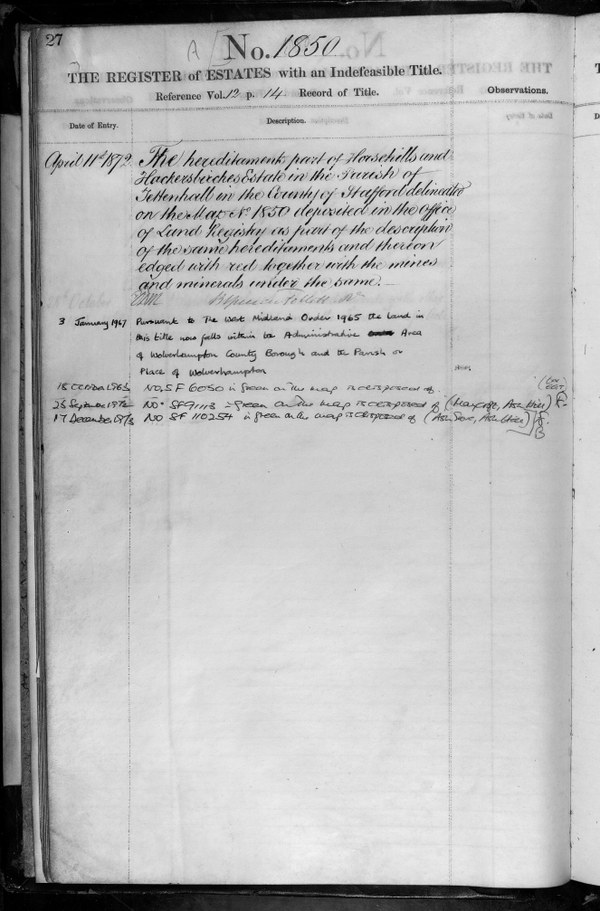 27
A No. 1850
THE REGISTER of ESTATES with an Indefeasible Title.
Reference Vol. 12 p. 14. Record of Title.
Observations.
Date of Entry.
Description.
April 11th 1872
The hereditaments part of Horsehills and
Hackersbirches Estate in the Parish of
Tettenhall in the County of Stafford delineated
on the Map No 1850 deposited in the Office
of Land Registry as part of the description
of the same hereditaments and thereon
edged with red together with the mines
and minerals under the same.
3 January 1967 Pursuant to The West Midland Order 1965 the land in
this title now falls within the Administrative Area
of Wolverhampton County Borough and the Parish or
Place of Wolverhampton
18 October 1963 No. SF 6050 in green on the map
25 September 1972 No. SF 9113 in green on the map
17 December 1973 No SF 110254 in green on the map